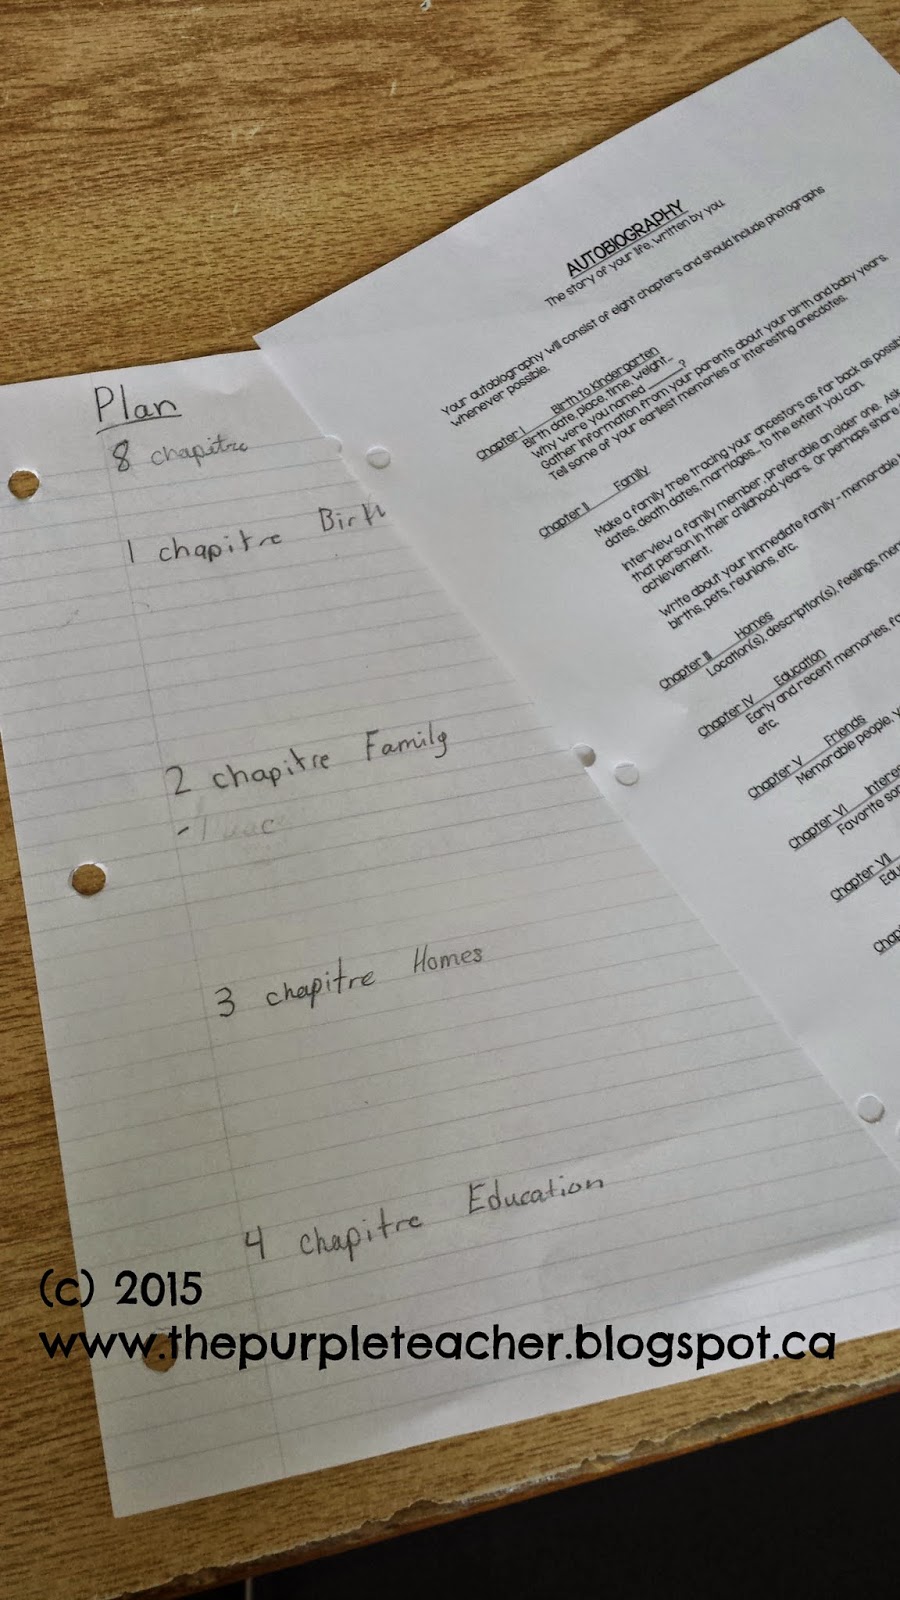 Plan
8 chapitre
1 chapitre Birth
2 chapitre Family
-
3 chapitre Homes
4 chapitre Education
AUTOBIOGRAPHY
The story of your life, written by you.
Your autobiography will consist of eight chapters and should include photographs
whenever possible.
Chapter I Birth to Kindergarten
Birth date, place, time, weight...
Why were you named ______?
Gather information from your parents about your birth and baby years.
Tell some of your earliest memories or interesting anecdotes.
Chapter II Family
Make a family tree tracing your ancestors as far back as
dates, death dates, marriages... to the extent you can.
Interview a family member, preferable an older one. Ask
that person in their childhood years. Or perhaps share
achievement.
Write about your immediate family - memorable
births, pets, reunions, etc.
Chapter III Homes
Location(s), description(s), feelings,
Chapter IV Education
Early and recent memories,
etc.
Chapter V Friends
Memorable people,
Chapter VI
Favorite
Chapter VII
(c) 2015
www.thepurpleteacher.blogspot.ca